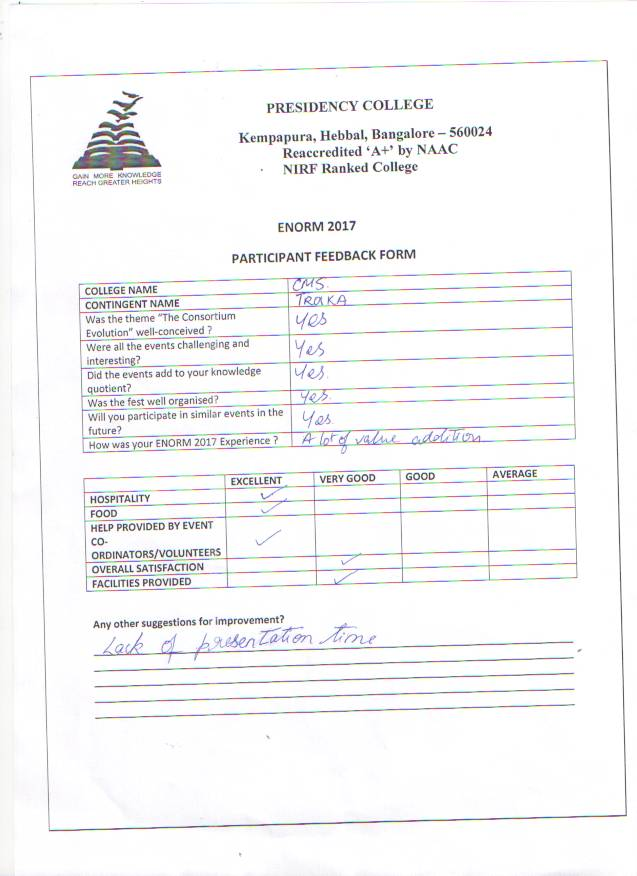 GAIN MORE KNOWLEDGE
REACH GREATER HEIGHTS
PRESIDENCY COLLEGE
Kempapura, Hebbal, Bangalore – 560024
Reaccredited ‘A+’ by NAAC
NIRF Ranked College
ENORM 2017
PARTICIPANT FEEDBACK FORM
COLLEGE NAME CMS.
CONTINGENT NAME TROIKA
Was the theme “The Consortium
Evolution” well-conceived ? Yes
Were all the events challenging and
interesting? Yes
Did the events add to your knowledge
quotient? Yes.
Was the fest well organised? Yes.
Will you participate in similar events in the
future? Yes.
How was your ENORM 2017 Experience ? A lot of value addition
EXCELLENT VERY GOOD GOOD AVERAGE
HOSPITALITY ✓
FOOD ✓
HELP PROVIDED BY EVENT
CO-
ORDINATORS/VOLUNTEERS ✓
OVERALL SATISFACTION ✓
FACILITIES PROVIDED ✓
Any other suggestions for improvement?
Lack of presentation time